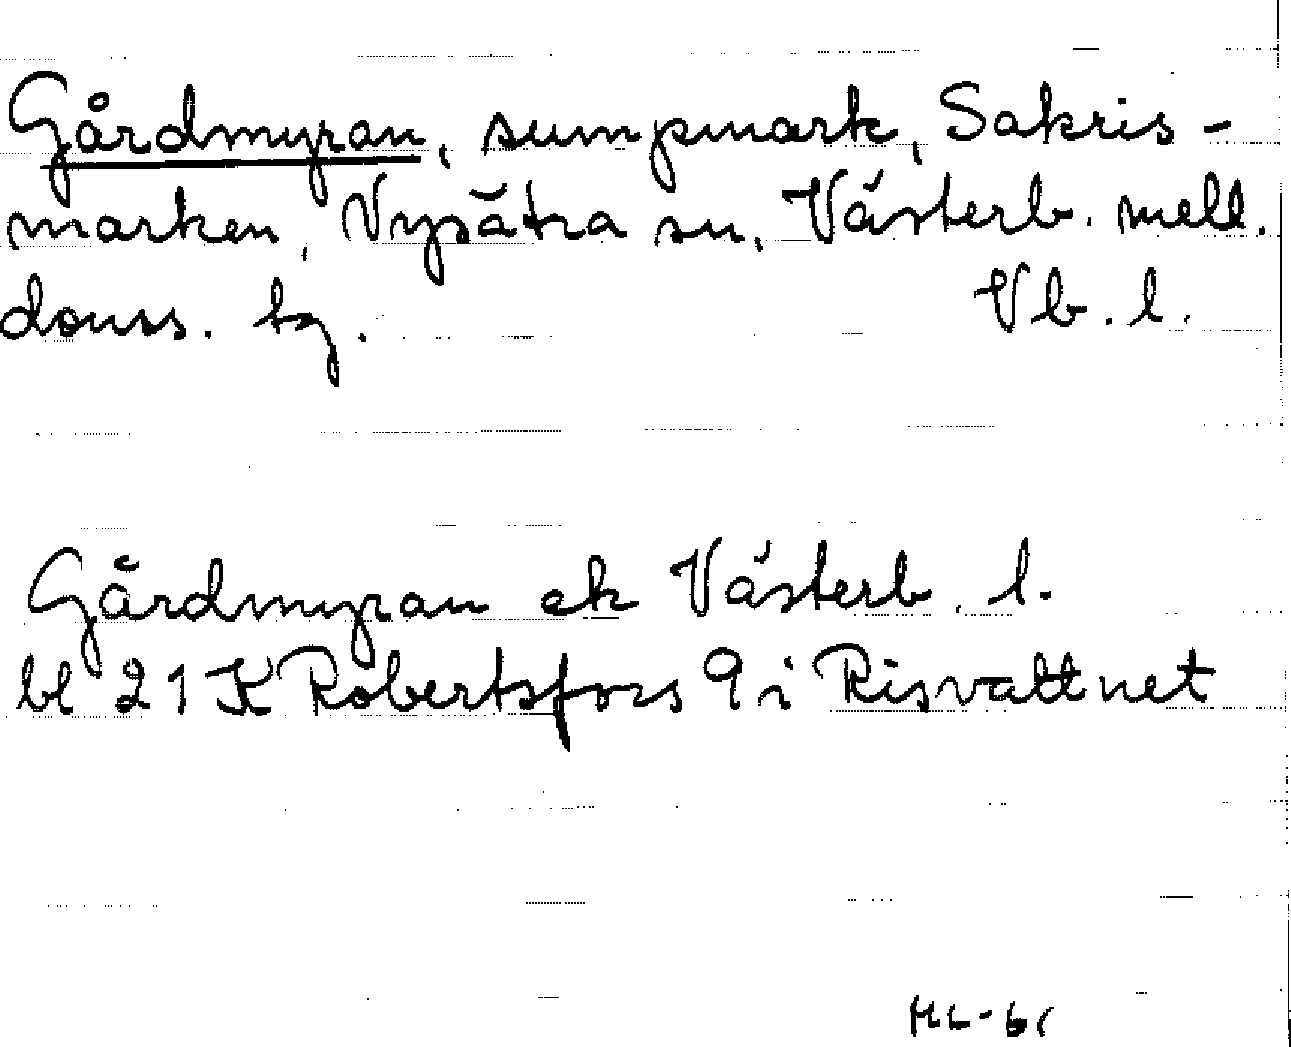 Gårdmyran, sumpmark, Sakris-
marken, Nysätra sn, Västerb. mell.
domss. tg. Vb. l.
Gårdmyran ek Västerb. l.
bl 21 K Robertsfors 9 i Risvattnet